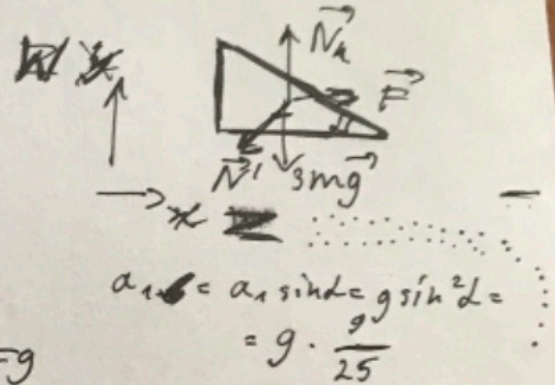 y
N⃗к
F⃗
N⃗'
3mg⃗
x
a₁ = a₁ sinα = g sin²α =
= g · 9/25
=g